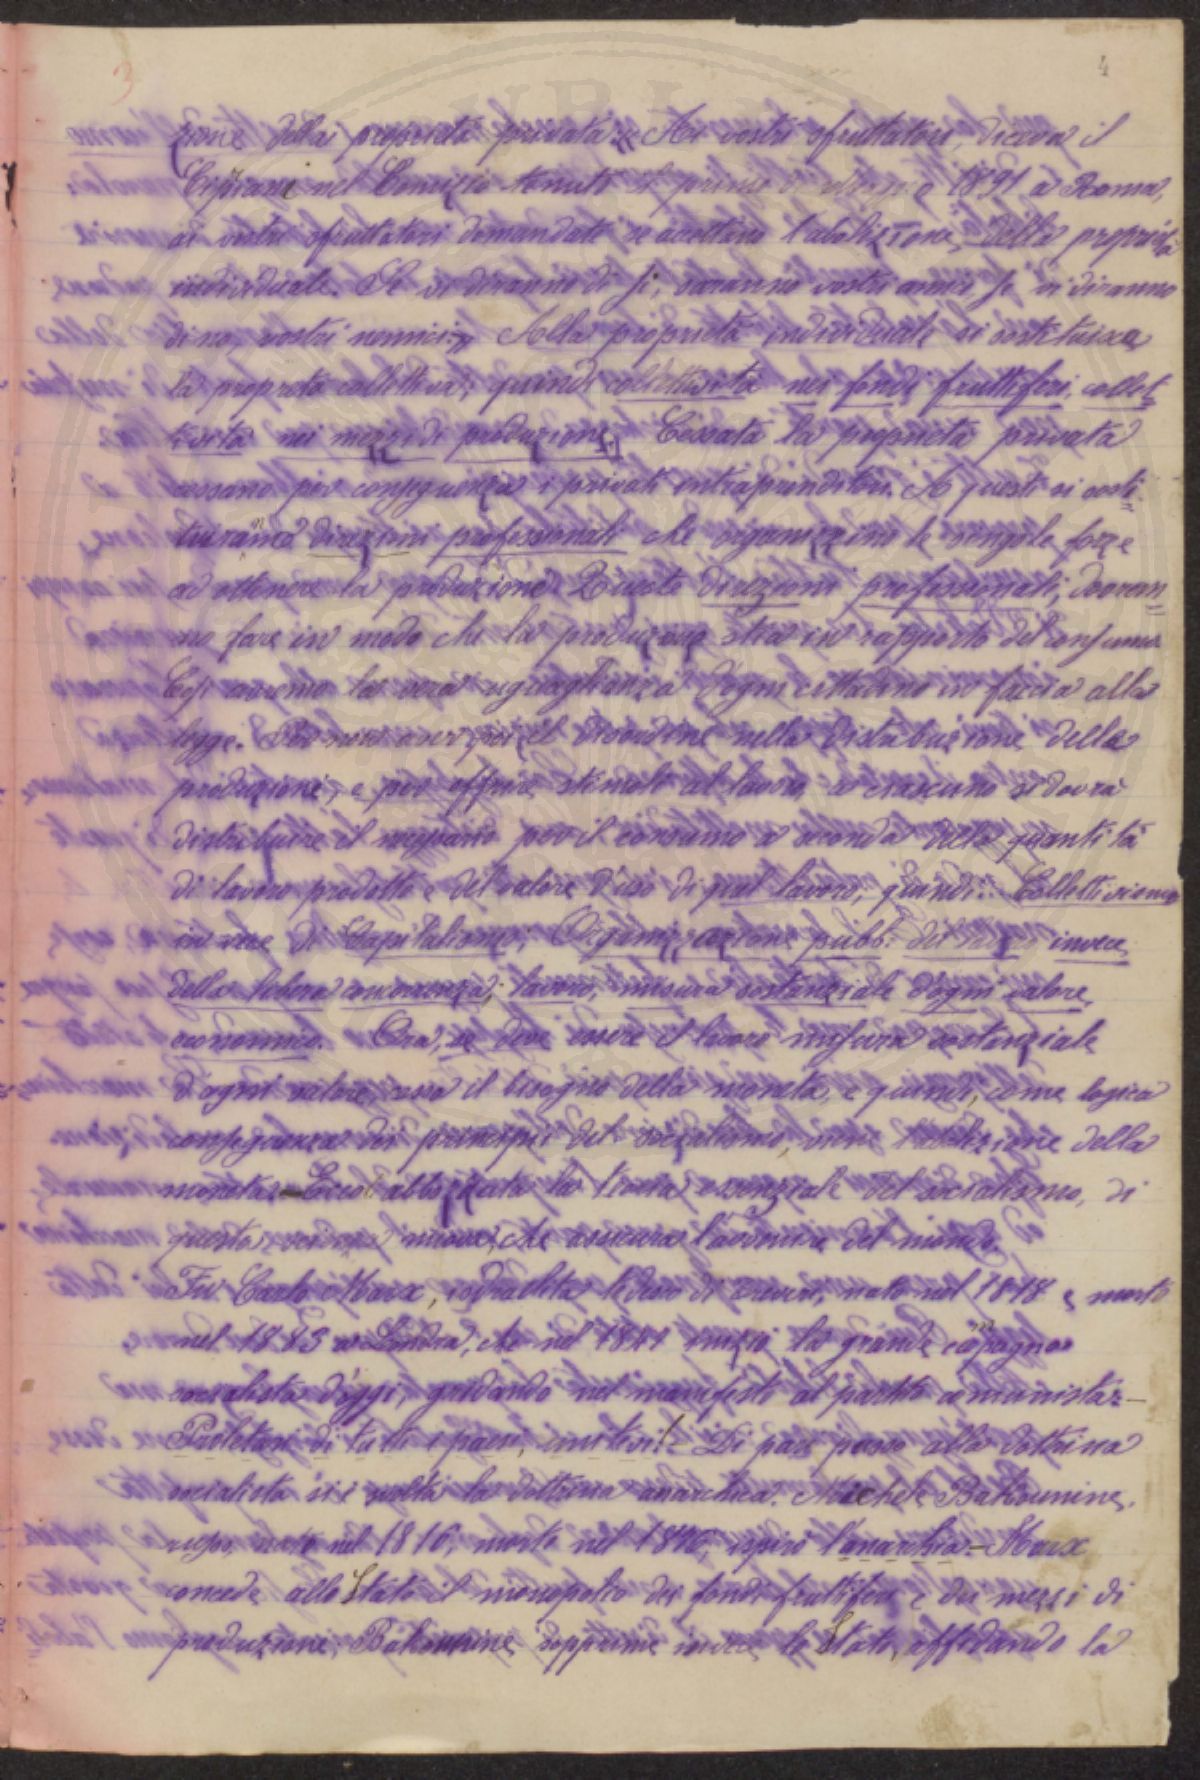 3
4
zione della proprietà privata „ Ai vostri sfruttatori, diceva il
Cipriani nel Comizio tenuto il primo di Maggio 1891 a Roma,
ai vostri sfruttatori domandate se accettano l'abolizione della proprietà
individuale. Se vi diranno di si, saranno vostri amici, se vi diranno
di no, vostri nemici „ Alla proprietà individuale si sostituisca
la proprietà collettiva; quindi collettività nei fondi fruttiferi, collet=
tività nei mezzi di produzione. Cessata la proprietà privata
cessano per conseguenza i privati intraprenditori. A questi si sosti=
tuiranno direzioni professionali che organizzino le singole forze
ad ottenere la produzione. Queste direzioni professionali, dovran=
no fare in modo che la produzione stia in rapporto del consumo.
Così avremo la vera uguaglianza d'ogni cittadino in faccia alla
legge. Per non aver poi il disordine nella distribuzione della
produzione, e per offrire stimolo al lavoro, a ciascuno si dovrà
distribuire il necessario per il consumo a seconda della quantità
di lavoro prodotto e del valore d'uso di quel lavoro, quindi: Collettivismo
in vece di Capitalismo; Organizzazione pubb. del lavoro invece
della libera concorrenza; lavoro, misura sostanziale d'ogni valore
economico. Ora, se deve essere il lavoro misura sostanziale
d'ogni valore, cessa il bisogno della moneta, e quindi, come logica
conseguenza dei principii del socialismo, viene l'abolizione della
moneta. – Eccoti abbozzata la teoria essenziale del socialismo, di
questa nuova, che assicura l'avvenire del mondo.
Fu Carlo Marx, israelita tedesco di Treveri, nato nel 1818 e morto
nel 1883 a Londra, che nel 1847 iniziò la grande campagna
socialista d'oggi, gridando nel manifesto al partito comunista: –
Proletari di tutti i paesi, unitevi! – Di pari passo alla dottrina
socialista si è svolta la dottrina anarchica. Michele Bakounine,
russo, nato nel 1816, morto nel 1876, ispirò l'anarchia. – Marx
concede allo Stato il monopolio dei fondi fruttiferi e dei mezzi di
produzione; Bakounine sopprime invece lo Stato, affidando la